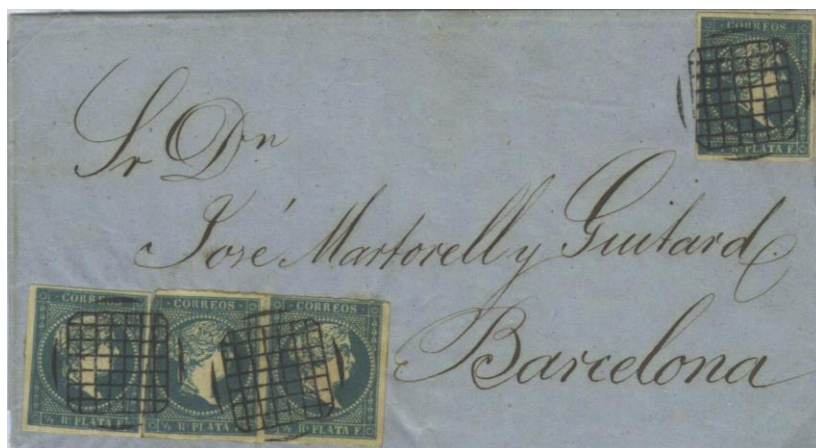 CORREOS
½ Rˡ PLATA F.
Sr Dⁿ
José Martorell y Guitard
Barcelona
CORREOS CORREOS CORREOS
½ Rˡ PLATA F. ½ Rˡ PLATA F. ½ Rˡ PLATA F.